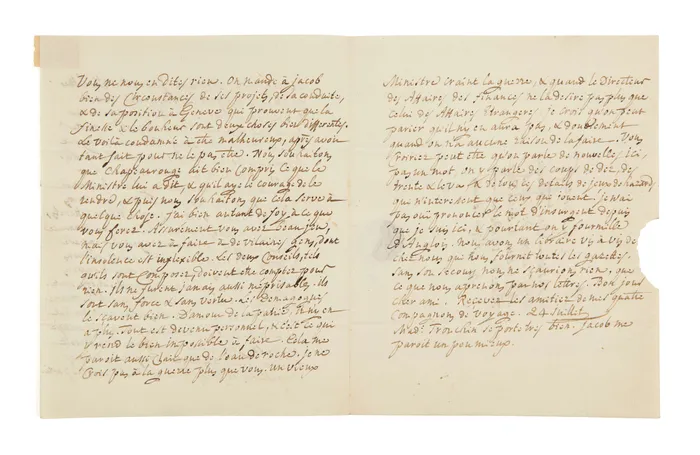 Vous ne nous en dites rien. On mande à jacob
bien des Circonstances de ses projets, de sa conduite,
& de sa position à Geneve qui prouvent que la
finesse & le bonheur sont deux choses bien differentes.
Le voilà condamné à etre malheureux, après avoir
tant fait pour ne le pas etre. Nous souhaitons
que Chapeaurouge ait bien compris ce que le
Ministre lui a dit, & qu'il aye le courage de le
rendre, & puis nous souhaitons que cela serve à
quelque chose. J'ai bien autant de foy à ce que
vous ferez. Assurement vous avez beau jeu,
mais vous avez à faire à de vilaines gens, dont
l'insolence est inflexible. Les deux Conseils, tels
qu'ils sont composez, doivent etre comptez pour
rien. Ils ne furent jamais aussi meprisables. Ils
sont sans force & sans vertu. Les demagogues
le sçavent bien. D'amour de la patrie il n'y en
a plus. Tout est devenu personnel, & c'est ce qui
y rend le bien impossible à faire. Cela me
paroit aussi clair que de l'eau de roche. Je ne
crois pas à la guerre plus que vous. Un vieux
Ministre craint la guerre, & quand le Directeur
des Affaires des finances ne la desire pas plus que
celui des Affaires Etrangeres je crois qu'on peut
parier qu'il n'y en aura pas, & doublement
quand on n'a aucune raison de la faire. Vous
croiriez peut etre qu'on parle de nouvelles ici,
pas un mot. On y parle des coups de dez, de
trente & le va & de tous les details de jeux de hazard,
qui n'interessent que ceux qui jouent. Je n'ai
pas oui prononcer le mot d'insurgent depuis
que je suis ici, & pourtant on y fourmille
d'Anglois. Nous avons un libraire vis à vis de
chez nous, qui nous fournit toutes les gazettes.
Sans son secours nous ne sçaurions rien, que
ce que nous aprenons par nos lettres. Bon jour
cher ami. Recevez les amitiez de mes quatre
Compagnons de Voyage. 24 Juillet
Mad.e Tronchin se porte tres bien. Jacob me
paroit un peu mieux.